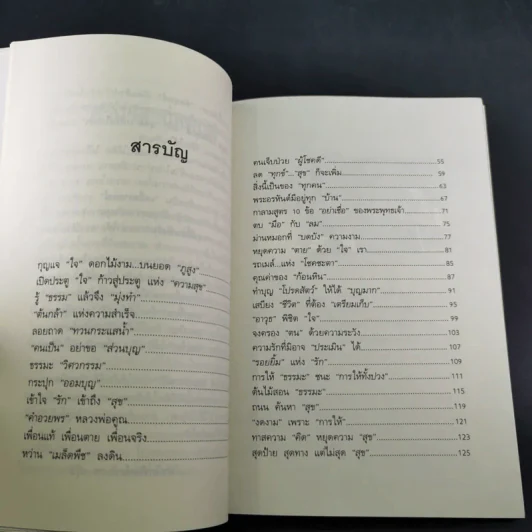 สารบัญ
กุญแจ "ใจ" ดอกไม้งาม...บนยอด "ภูสูง"
เปิดประตู "ใจ" ก้าวสู่ประตู แห่ง "ความสุข"
รู้ "ธรรม" แล้วจึง "มุ่งทำ"
"ต้นกล้า" แห่งความสำเร็จ
ลอยถาด "ทวนกระแสน้ำ"
"คนเป็น" อย่าขอ "ส่วนบุญ"
ธรรมะ "วิศวกรรม"
กระปุก "ออมบุญ"
เข้าใจ "รัก" เข้าถึง "สุข"
"คำอวยพร" หลวงพ่อคูณ
เพื่อนแท้ เพื่อนตาย เพื่อนจริง
หว่าน "เมล็ดพืช" ลงดิน
คนเจ็บป่วย "ผู้โชคดี" 55
ลด "ทุกข์"..."สุข" ก็จะเพิ่ม 59
สิ่งนี้เป็นของ "ทุกคน" 63
พระอรหันต์มีอยู่ทุก "บ้าน" 67
กาลามสูตร 10 ข้อ "อย่าเชื่อ" ของพระพุทธเจ้า 71
ตบ "มือ" กับ "ลม" 75
ม่านหมอกที่ "บดบัง" ความงาม 77
หยุดความ "ตาย" ด้วย "ใจ" เรา 81
รถเมล์...แห่ง "โชคชะตา" 85
คุณค่าของ "ก้อนหิน" 87
ทำบุญ "โปรดสัตว์" ให้ได้ "บุญมาก" 91
เสบียง "ชีวิต" ที่ต้อง "เตรียมเก็บ" 95
"อาวุธ" พิชิต "ใจ" 99
จงครอง "ตน" ด้วยความระวัง 103
ความรักที่มิอาจ "ประเมิน" ได้ 107
"รอยยิ้ม" แห่ง "รัก" 109
การให้ "ธรรมะ" ชนะ "การให้ทั้งปวง" 111
ต้นไม้สอน "ธรรมะ" 115
ถนน ค้นหา "สุข" 119
"งดงาม" เพราะ "การให้" 121
ทาสความ "คิด" หยุดความ "สุข" 123
สุดป้าย สุดทาง แต่ไม่สุด "สุข" 125